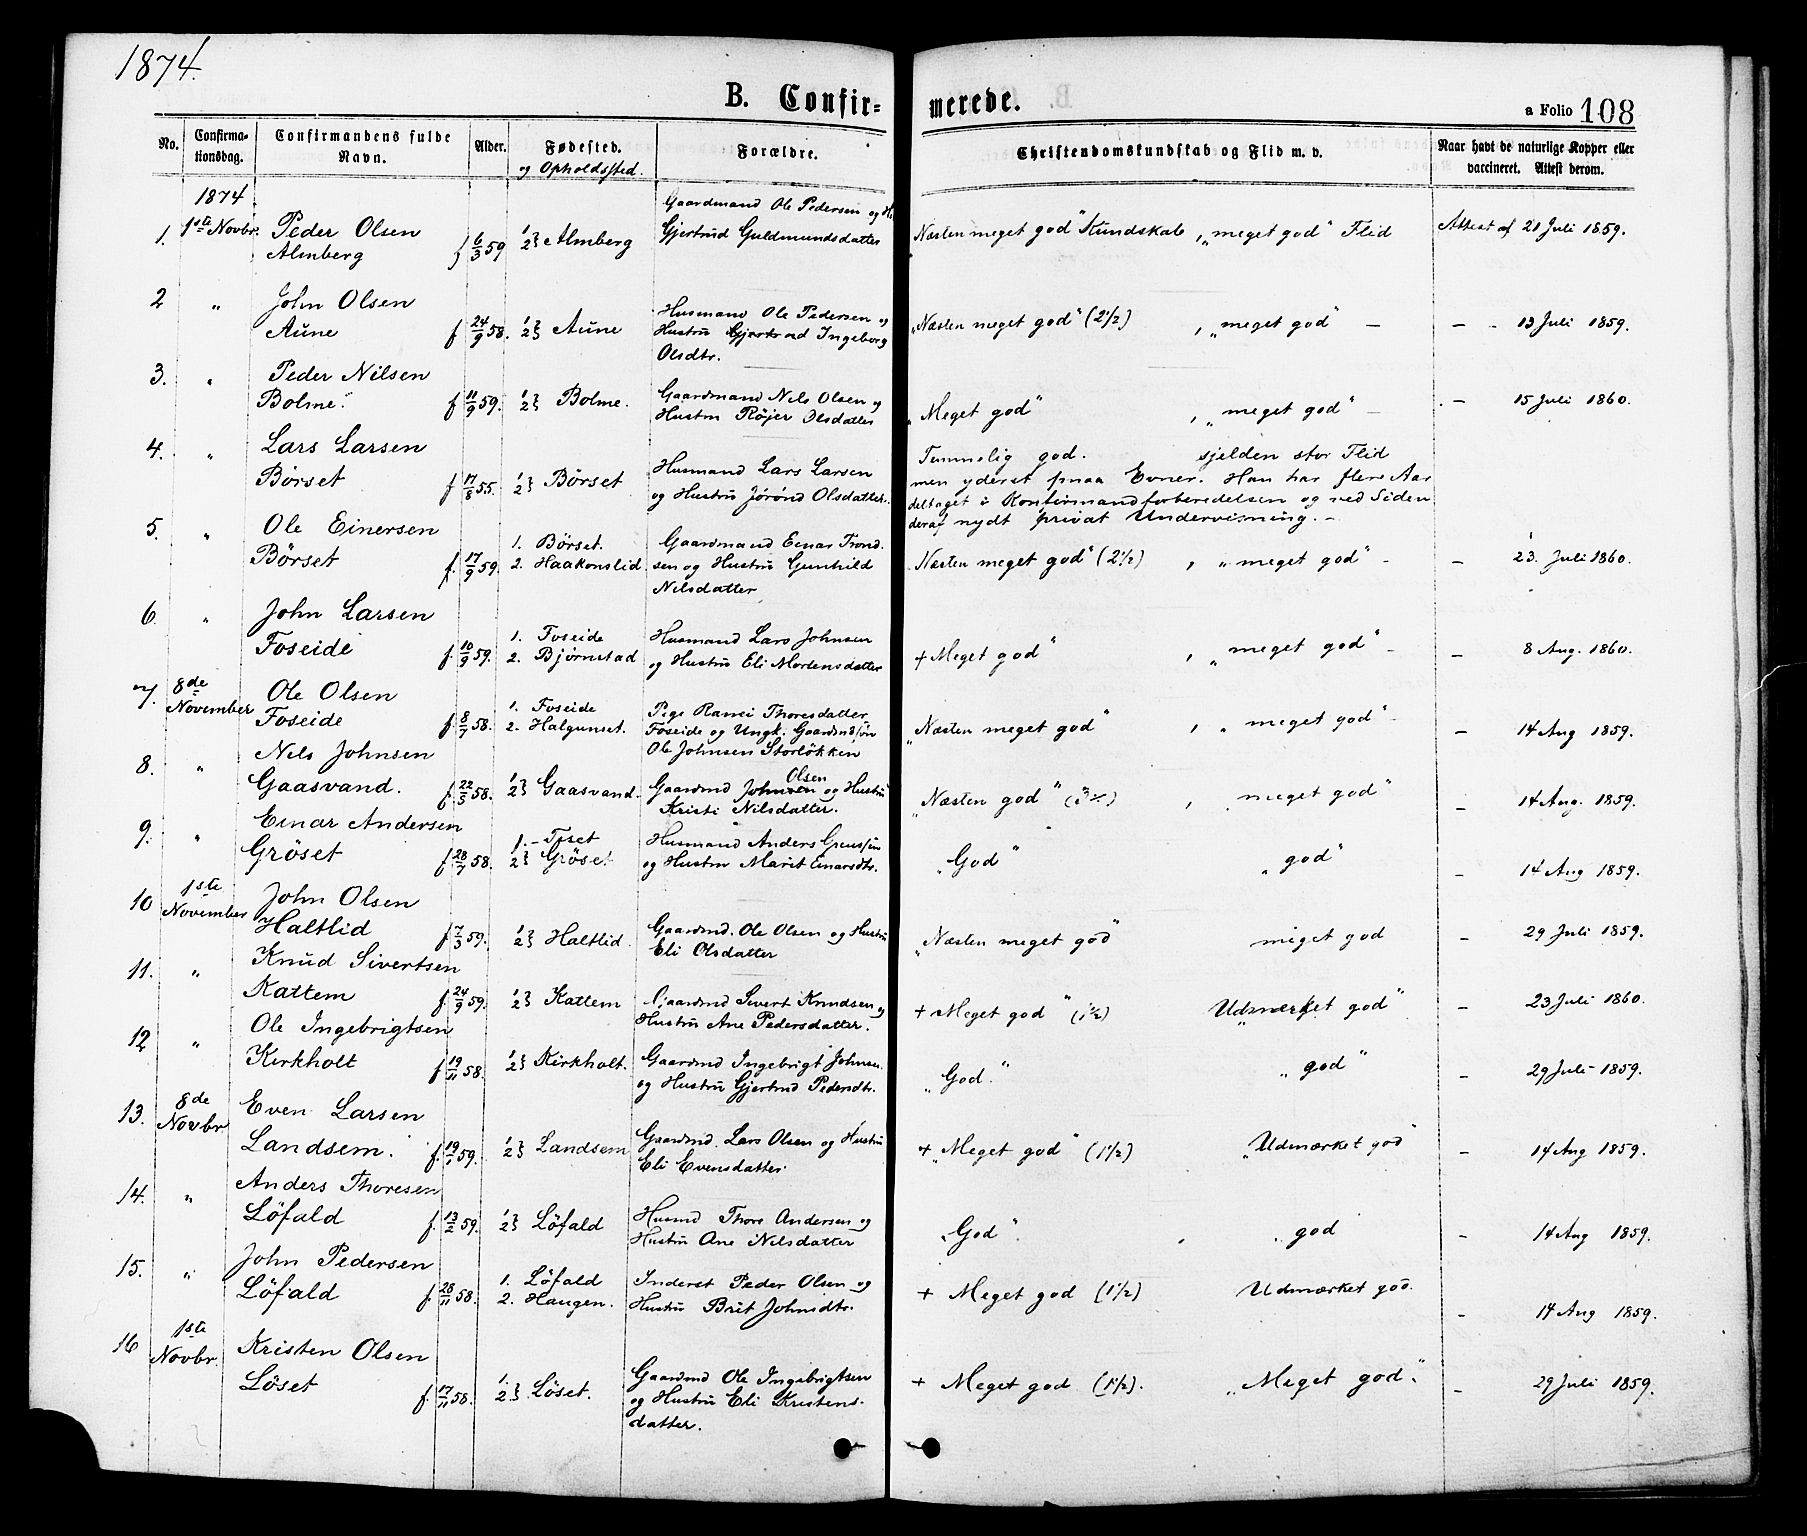 1874.
B. Confir-
merede.
a Folio 108
No.
Confirma-
tionsdag.
Confirmandens fulde
Navn.
Alder.
Fødested.
og Opholdssted.
Forældre.
Christendomskundskab og Flid m. v.
Naar havt de naturlige Kopper eller
vaccineret. Attest derom.
1874
1. 1ste Novbr. Peder Olsen
Almberg f 6/3 59 1/2} Almberg
Gaardmand Ole Pedersen og H.
Gjertrud Guldmundsdatter
Næsten meget god" Kundskab, "meget god" Flid
Attest af 21 Juli 1859.
2 " John Olsen
Aune f 24/9 58. 1/2} Aune
Husmand Ole Pedersen og
Hustru Gjertrud Ingeborg
Olsdtr.
"Næsten meget god" (2 1/2) , "meget god" —
— - 13 Juli 1859.
3. " Peder Nilsen
Bolme. f 11/9 59. 1/2} Bolme.
Gaardmand Nils Olsen og
Hustru Røjer Olsdatter
"Meget god" , "meget god" —
— 15 Juli 1860.
4. " Lars Larsen
Börset f 17/8 55. 1/2} Börset
Husmand Lars Larsen
og Hustru Jörönd Olsdatter.
Temmelig god. sjelden stor Flid
men yderst smaa Evner. Han har flere Aar
deltaget i Konfirmandforberedelsen og ved Siden
deraf nydt privat Undervisning. —
5. " Ole Einersen
Börset f. 17/9 59. 1. Börset.
2. Haakonslid
Gaardmand Einar Trond-
sen og Hustru Gunhild
Nilsdatter
Næsten meget god" (2 1/2) , "meget god" -
— 23. Juli 1860.
6. " John Larsen
Foseide f. 10/9 59. 1. Foseide
2. Bjørnstad
Husmand Lars Johnsen
og Hustru Eli Mortensdatter
+ Meget god" , "meget god" -
— 8 Aug. 1860.
7. 8de November Ole Olsen
Foseide f. 8/7 58. 1. Foseide
2. Halgunset.
Pige Ranei Thoresdatter
Foseide og Ungk. Gaardmdsön
Ole Johnsen Storlökken
"Næsten meget god" , "meget god" -
— 14 Aug 1859.
8. " Nils Johnsen
Gaasvand. f 22/5 58. 1/2} Gaasvand.
Olsen
Gaardmd Johnsen og Hustru
Kristi Nilsdatter.
"Næsten god" , "meget god"
— 14 Aug. 1859.
9. " Einar Andersen
Gröset f 28/7 58. 1. — Tiset
2} Gröset
Husmand Anders
og Hustru Marit Einarsdtr.
"God" "god"
— 14 Aug 1859.
10 1ste November John Olsen
Haltlid f 7/3 59. 1/2} Haltlid.
Gaardmd. Ole Olsen og Hustru
Eli Olsdatter
"Næsten meget god" meget god
— 29 Juli 1859.
11. " Knud Sivertsen
Kattem f. 24/9 59. 1/2} Kattem
Gaardmd Sivert Knudsen og
Hustru Ane Pedersdatter.
+ Meget god" (1 1/2) "Udmærket god"
— 23 Juli 1860
12 " Ole Ingebrigtsen
Kirkholt f 19/11 58. 1/2} Kirkholt.
Gaardmd Ingebrigt Johnsen
og Hustru Gjertrud Pedersdtr.
"God." "god"
— 29 Juli 1859.
13. 8de Novbr Even Larsen
Landsem. f. 19/1 59. 1/2} Landsem
Gaardmd. Lars Olsen og Hustru
Eli Evensdatter.
+ "Meget god" (1 1/2) "Udmærket god"
— 14 Aug 1859.
14. " Anders Thoresen
Löfald f. 13/2 59. 1/2} Löfald
Husmd Thore Andersen og
Hustru Ane Nilsdatter
"God". , "god
— 14 Aug 1859.
15. " John Pedersen
Löfald f. 28/11 58. 1. Löfald
2. Haugen.
Inderst Peder Olsen og
Hustru Brit Johnsdtr.
+ Meget god (1 1/2) Udmærket god.
— 14 Aug 1859.
16 1ste Novbr. Kristen Olsen
Löset f. 17/11 58. 1/2} Löset.
Gaardmd Ole Ingebrigtsen
og Hustru Eli Kristens-
datter.
+ Meget god (1 1/2). "Meget god".
— 29 Juli 1859.